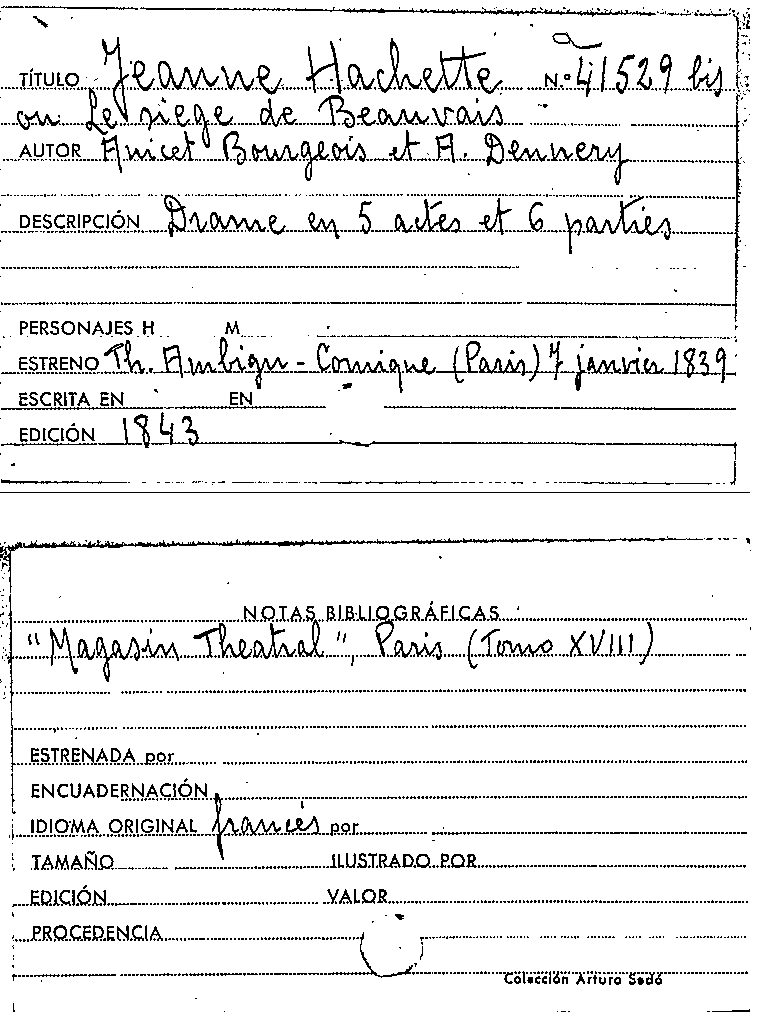 TÍTULO Jeanne Hachette N.º 41529 bis
ou Le siege de Beauvais
AUTOR Anicet Bourgeois et A. Dennery
DESCRIPCIÓN Drame en 5 actes et 6 parties
PERSONAJES H M
ESTRENO Th. Ambigu-Comique (Paris) 7 janvier 1839
ESCRITA EN EN
EDICIÓN 1843
NOTAS BIBLIOGRÁFICAS
"Magasin Theatral", Paris (Tomo XVIII)
ESTRENADA por
ENCUADERNACIÓN
IDIOMA ORIGINAL francés por
TAMAÑO ILUSTRADO POR
EDICIÓN VALOR
PROCEDENCIA
Colección Arturo Sedó